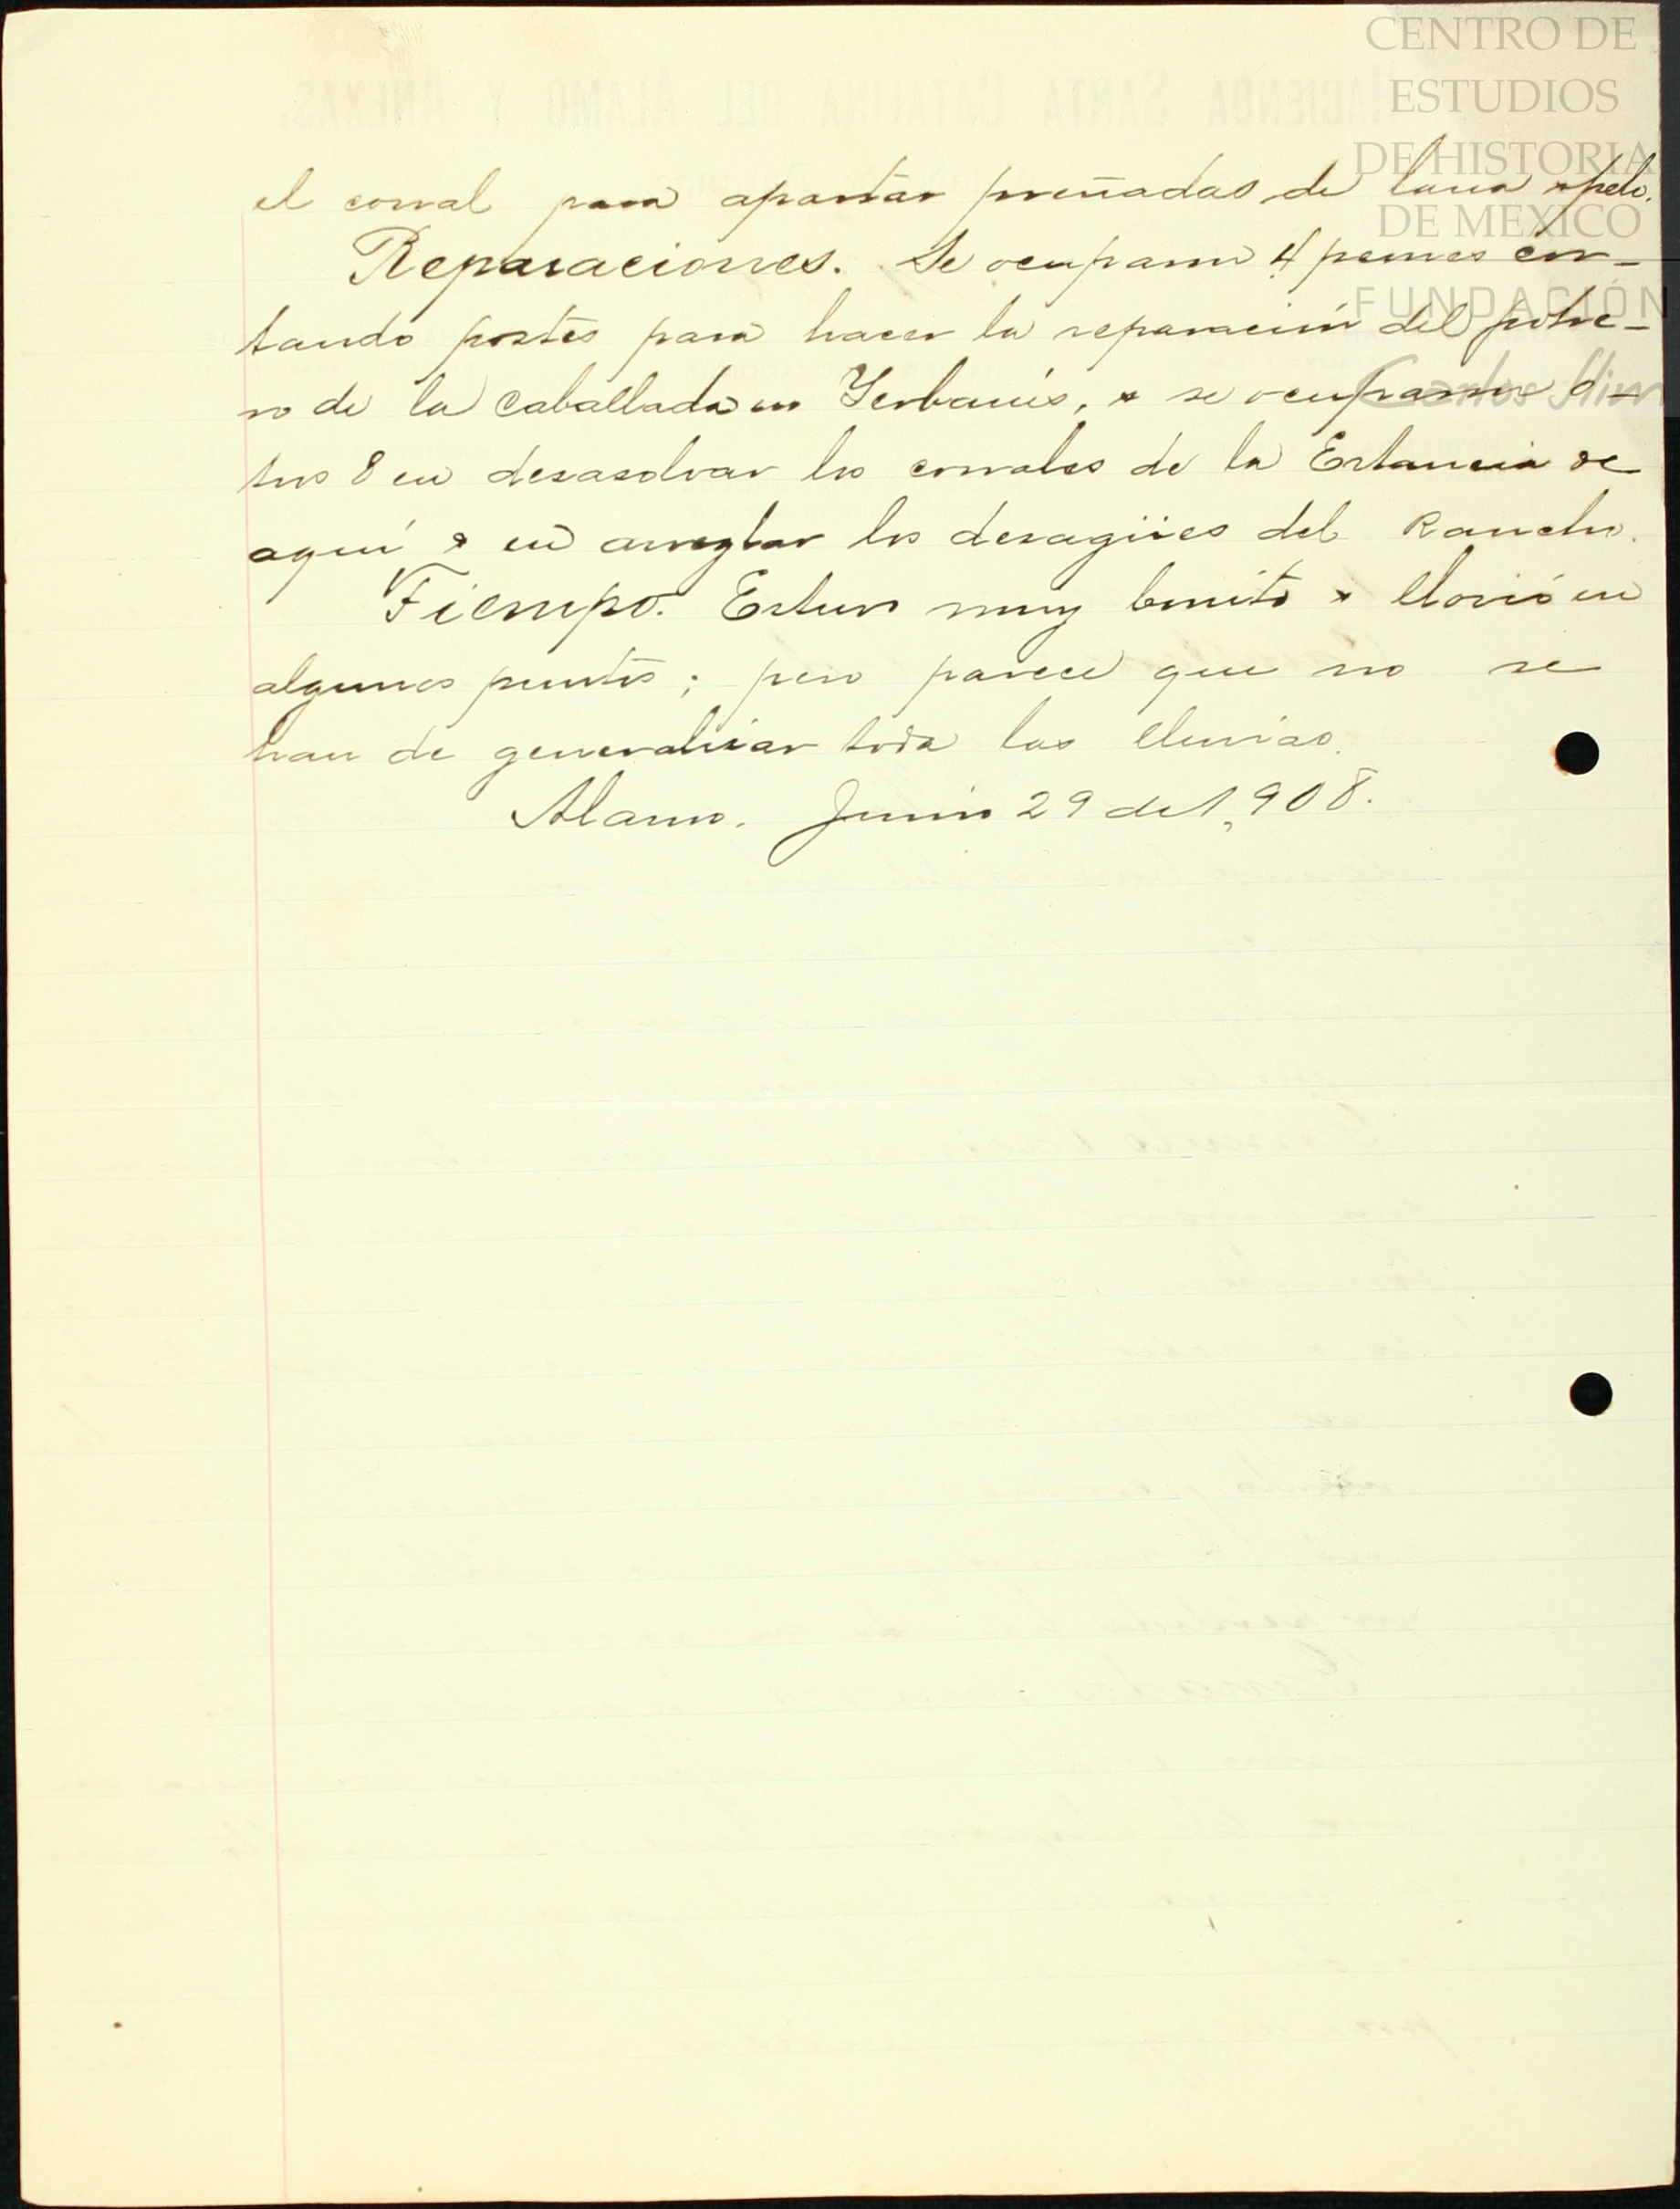 CENTRO DE
ESTUDIOS
DE HISTORIA
DE MEXICO
FUNDACIÓN
Carlos Slim
HACIENDA SANTA CATALINA DEL ALAMO Y ANEXAS.
el corral para apartar preñadas de lana y pelo.
Reparaciones. Se ocuparon 4 peones cor-
tando postes para hacer la reparación del potre-
ro de la caballada en Yerbanís, y se ocuparon o-
tros 8 en desasolvar los corrales de la Estancia de
aquí y en arreglar los desagües del Rancho.
Tiempo. Estuvo muy bonito y llovió en
algunos puntos; pero parece que no se
han de generalizar toda las lluvias.
Alamo. Junio 29 de 1,908.